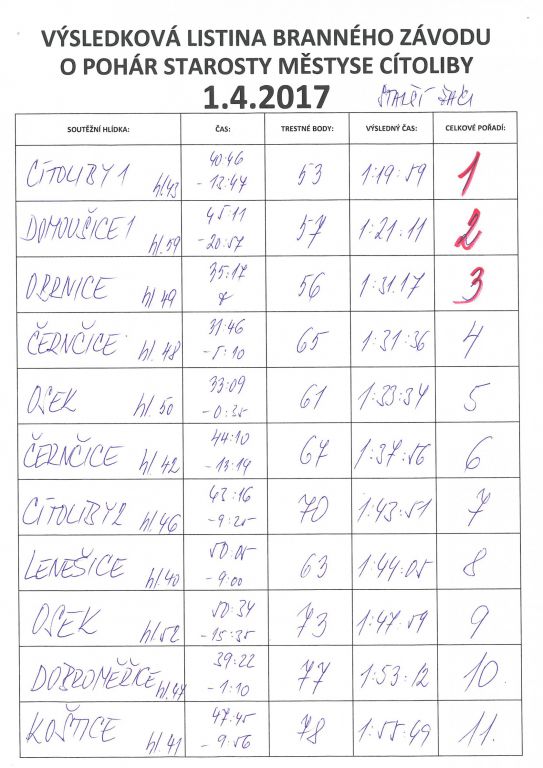 VÝSLEDKOVÁ LISTINA BRANNÉHO ZÁVODU
O POHÁR STAROSTY MĚSTYSE CÍTOLIBY
1.4.2017 STARŠÍ ŽÁCI
SOUTĚŽNÍ HLÍDKA: ČAS: TRESTNÉ BODY: VÝSLEDNÝ ČAS: CELKOVÉ POŘADÍ:
40:46
CÍTOLIBY 1 hl.43 -13:47 53 1:19:59 1
45:11
DOMOUŠICE 1 hl.59 -20:57 57 1:21:11 2
35:17
OBRNICE hl 49 56 1:31.17 3
31:46
ČERNČICE hl.48 -5:10 65 1:31:36 4
33:09
OSEK hl.50 -0:35 61 1:33:34 5
44:10
ČERNČICE hl 42 -13:14 67 1:37:56 6
43:16
CÍTOLIBY 2 hl.46 -9:25 70 1:43:51 7
50:05
LENEŠICE hl.40 -9:00 63 1:44:05 8
50:34
OSEK hl.52 -15:35 73 1:47:59 9
39:22
DOBROMĚŘICE hl.47 -1:10 77 1:53:12 10.
47:45
KOŠTICE hl.41 -9:56 78 1:55:49 11.